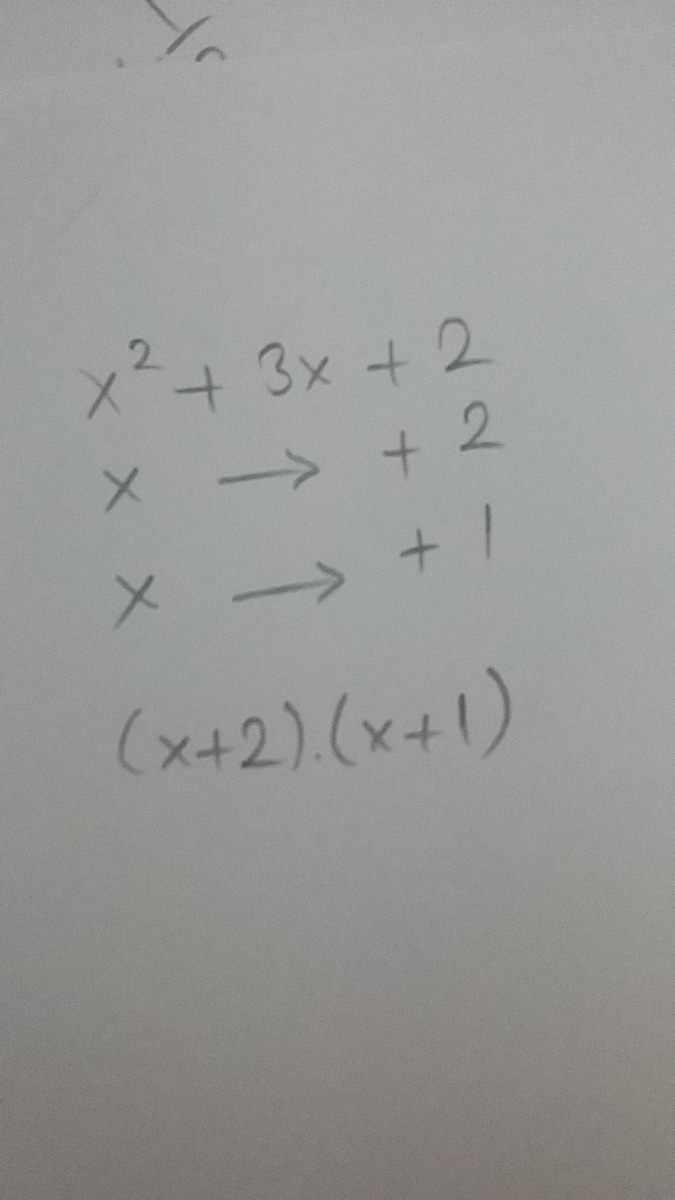 x² + 3x + 2
x → + 2
x → + 1
(x+2).(x+1)